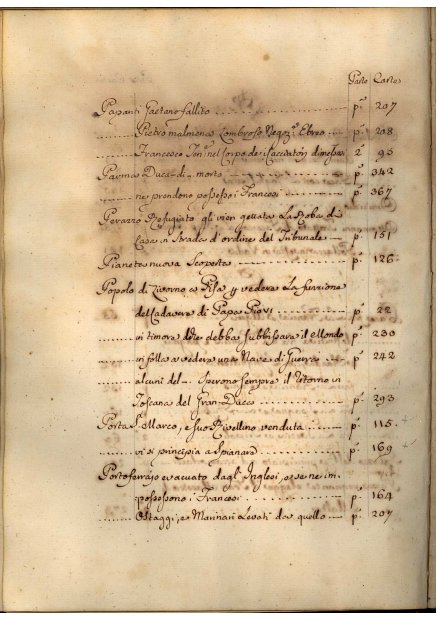 Parte Carte
Papanti Gaetano fallito p.ª 207
Pietro malmena Lombroso Negoz.te Ebreo p.ª 208
Francesco Ten.te nel Corpo de i Cacciatori 2.ª 93
Parma Duca di morto p.ª 342
ne prendono possesso i Francesi p.ª 367
Perazzo Refugiato gli vien gettata La Roba di
Casa in Strada d'ordine del Tribunale p.ª 151
Pianeta nuova Scoperta p.ª 126
Popolo di Livorno a Pisa p vedere La funzione
del Cadavere di Papa Pio VI p.ª 22
in timore che debba subbissare il Mondo p.ª 230
in folla a vedere una Nave di Guerra p.ª 242
alcuni del Sperono sempre il ritorno in
Toscana del Gran-Duca p.ª 293
Porta S. Marco, e suo Rivellino venduta p.ª 115
vi si principia a Spianare p.ª 169
Portoferrajo evacuato dagl' Inglesi, e se ne im
possessono i Francesi p.ª 164
Ostaggi, e Marinari Levati da quello p.ª 207